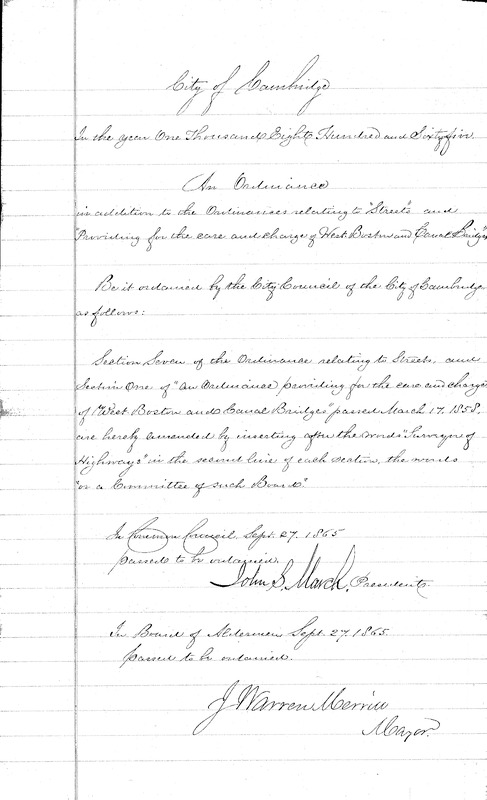 City of Cambridge
In the year One Thousand Eight Hundred and Sixty five.
An Ordinance
in addition to the Ordinances relating to "Streets" and
"Providing for the care and charge of West Boston and Canal Bridges"
Be it ordained by the City Council of the City of Cambridge
as follows:
Section Seven of the Ordinance relating to Streets, and
Section One of "An Ordinance providing for the care and charge
of West Boston and Canal Bridges" passed March 17, 1858,
are hereby amended by inserting after the words "Surveyors of
Highways" in the second line of each section, the words
"or a Committee of such Board".
In Common Council, Sept. 27. 1865
passed to be ordained.
John S. March, President
In Board of Aldermen Sept. 27. 1865.
passed to be ordained.
J Warren Merrill
Mayor.